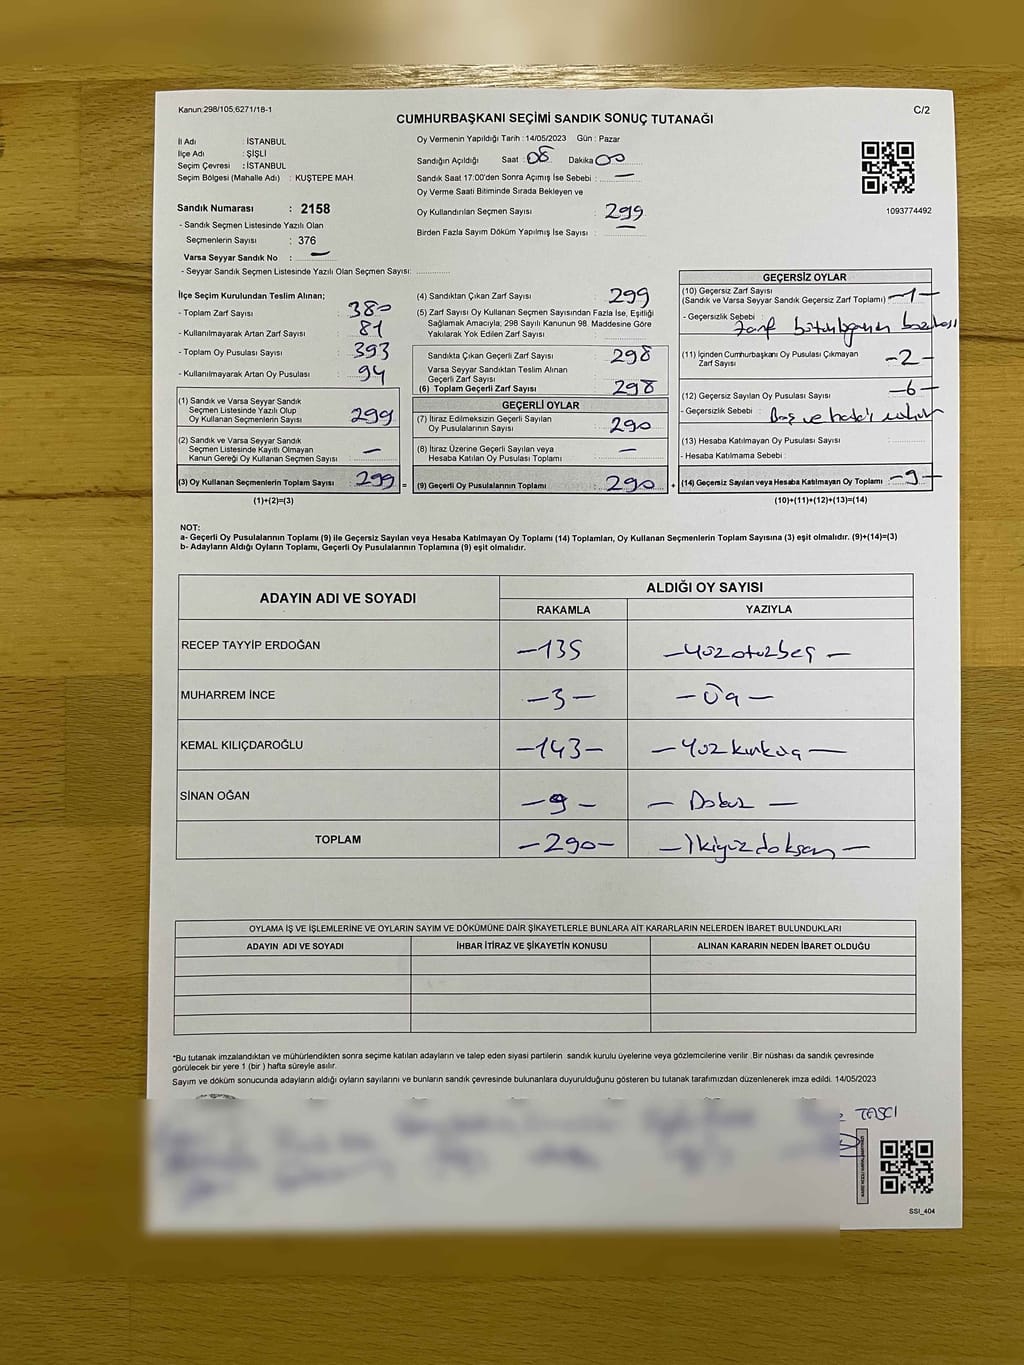 Kanun:298/105,6271/18-1
C/2
CUMHURBAŞKANI SEÇİMİ SANDIK SONUÇ TUTANAĞI
İl Adı : İSTANBUL
İlçe Adı : ŞİŞLİ
Seçim Çevresi : İSTANBUL
Seçim Bölgesi (Mahalle Adı) : KUŞTEPE MAH.
Sandık Numarası : 2158
- Sandık Seçmen Listesinde Yazılı Olan
Seçmenlerin Sayısı : 376
Varsa Seyyar Sandık No : —
- Seyyar Sandık Seçmen Listesinde Yazılı Olan Seçmen Sayısı: ............
Oy Vermenin Yapıldığı Tarih : 14/05/2023 Gün : Pazar
Sandığın Açıldığı Saat : 08 Dakika 00
Sandık Saat 17:00'den Sonra Açımış İse Sebebi : —
Oy Verme Saati Bitiminde Sırada Bekleyen ve
Oy Kullandırılan Seçmen Sayısı : 299
Birden Fazla Sayım Döküm Yapılmış İse Sayısı : —
1093774492
İlçe Seçim Kurulundan Teslim Alınan;
- Toplam Zarf Sayısı : 380
- Kullanılmayarak Artan Zarf Sayısı : 81
- Toplam Oy Pusulası Sayısı : 393
- Kullanılmayarak Artan Oy Pusulası : 94
(1) Sandık ve Varsa Seyyar Sandık
Seçmen Listesinde Yazılı Olup
Oy Kullanan Seçmenlerin Sayısı : 299
(2) Sandık ve Varsa Seyyar Sandık
Seçmen Listesinde Kayıtlı Olmayan
Kanun Gereği Oy Kullanan Seçmen Sayısı : —
(3) Oy Kullanan Seçmenlerin Toplam Sayısı : 299 =
(1)+(2)=(3)
(4) Sandıktan Çıkan Zarf Sayısı : 299
(5) Zarf Sayısı Oy Kullanan Seçmen Sayısından Fazla İse, Eşitliği
Sağlamak Amacıyla; 298 Sayılı Kanunun 98. Maddesine Göre
Yakılarak Yok Edilen Zarf Sayısı :
Sandıkta Çıkan Geçerli Zarf Sayısı : 298
Varsa Seyyar Sandıktan Teslim Alınan
Geçerli Zarf Sayısı :
(6) Toplam Geçerli Zarf Sayısı : 298
GEÇERLİ OYLAR
(7) İtiraz Edilmeksizin Geçerli Sayılan
Oy Pusulalarının Sayısı : 290
(8) İtiraz Üzerine Geçerli Sayılan veya
Hesaba Katılan Oy Pusulası Toplamı : —
(9) Geçerli Oy Pusulalarının Toplamı : 290 +
GEÇERSİZ OYLAR
(10) Geçersiz Zarf Sayısı
(Sandık ve Varsa Seyyar Sandık Geçersiz Zarf Toplamı) : —1—
- Geçersizlik Sebebi : Zarf
(11) İçinden Cumhurbaşkanı Oy Pusulası Çıkmayan
Zarf Sayısı : -2-
(12) Geçersiz Sayılan Oy Pusulası Sayısı : —6—
- Geçersizlik Sebebi : Boş ve
(13) Hesaba Katılmayan Oy Pusulası Sayısı :
- Hesaba Katılmama Sebebi :
(14) Geçersiz Sayılan veya Hesaba Katılmayan Oy Toplamı : —9—
(10)+(11)+(12)+(13)=(14)
NOT:
a- Geçerli Oy Pusulalarının Toplamı (9) ile Geçersiz Sayılan veya Hesaba Katılmayan Oy Toplamı (14) Toplamları, Oy Kullanan Seçmenlerin Toplam Sayısına (3) eşit olmalıdır. (9)+(14)=(3)
b- Adayların Aldığı Oyların Toplamı, Geçerli Oy Pusulalarının Toplamına (9) eşit olmalıdır.
ADAYIN ADI VE SOYADI
ALDIĞI OY SAYISI
RAKAMLA YAZIYLA
RECEP TAYYİP ERDOĞAN —135 —Yüzotuzbeş—
MUHARREM İNCE —3— —Üç—
KEMAL KILIÇDAROĞLU —143— —Yüzkırküç—
SİNAN OĞAN —9— —Dokuz—
TOPLAM —290— —İkiyüzdoksan—
OYLAMA İŞ VE İŞLEMLERİNE VE OYLARIN SAYIM VE DÖKÜMÜNE DAİR ŞİKAYETLERLE BUNLARA AİT KARARLARIN NELERDEN İBARET BULUNDUKLARI
ADAYIN ADI VE SOYADI İHBAR İTİRAZ VE ŞİKAYETİN KONUSU ALINAN KARARIN NEDEN İBARET OLDUĞU
*Bu tutanak imzalandıktan ve mühürlendikten sonra seçime katılan adayların ve talep eden siyasi partilerin sandık kurulu üyelerine veya gözlemcilerine verilir .Bir nüshası da sandık çevresinde
görülecek bir yere 1 (bir ) hafta süreyle asılır.
Sayım ve döküm sonucunda adayların aldığı oyların sayılarını ve bunların sandık çevresinde bulunanlara duyurulduğunu gösteren bu tutanak tarafımızdan düzenlenerek imza edildi. 14/05/2023
TAŞCI
SSI_404